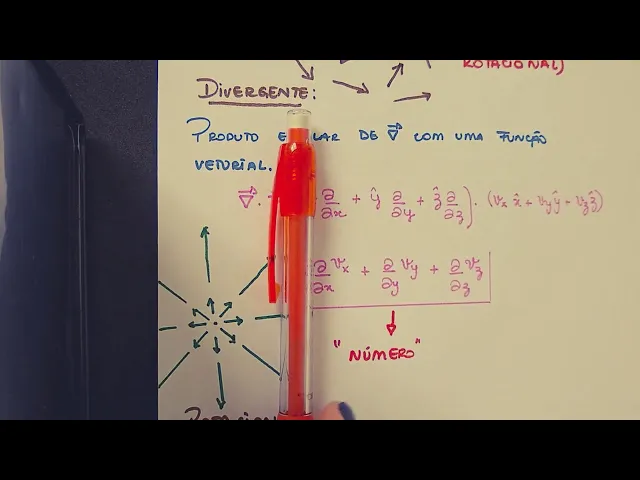 ROTACIONAL)
DIVERGENTE:
PRODUTO DE ∇⃗ COM UMA FUNÇÃO
VETORIAL.
∇⃗. ∂/∂x + ŷ ∂/∂y + ẑ ∂/∂z). (vx x̂ + vyŷ + vzẑ)
∂/∂x vx + ∂/∂y vy + ∂/∂z vz
"NÚMERO"